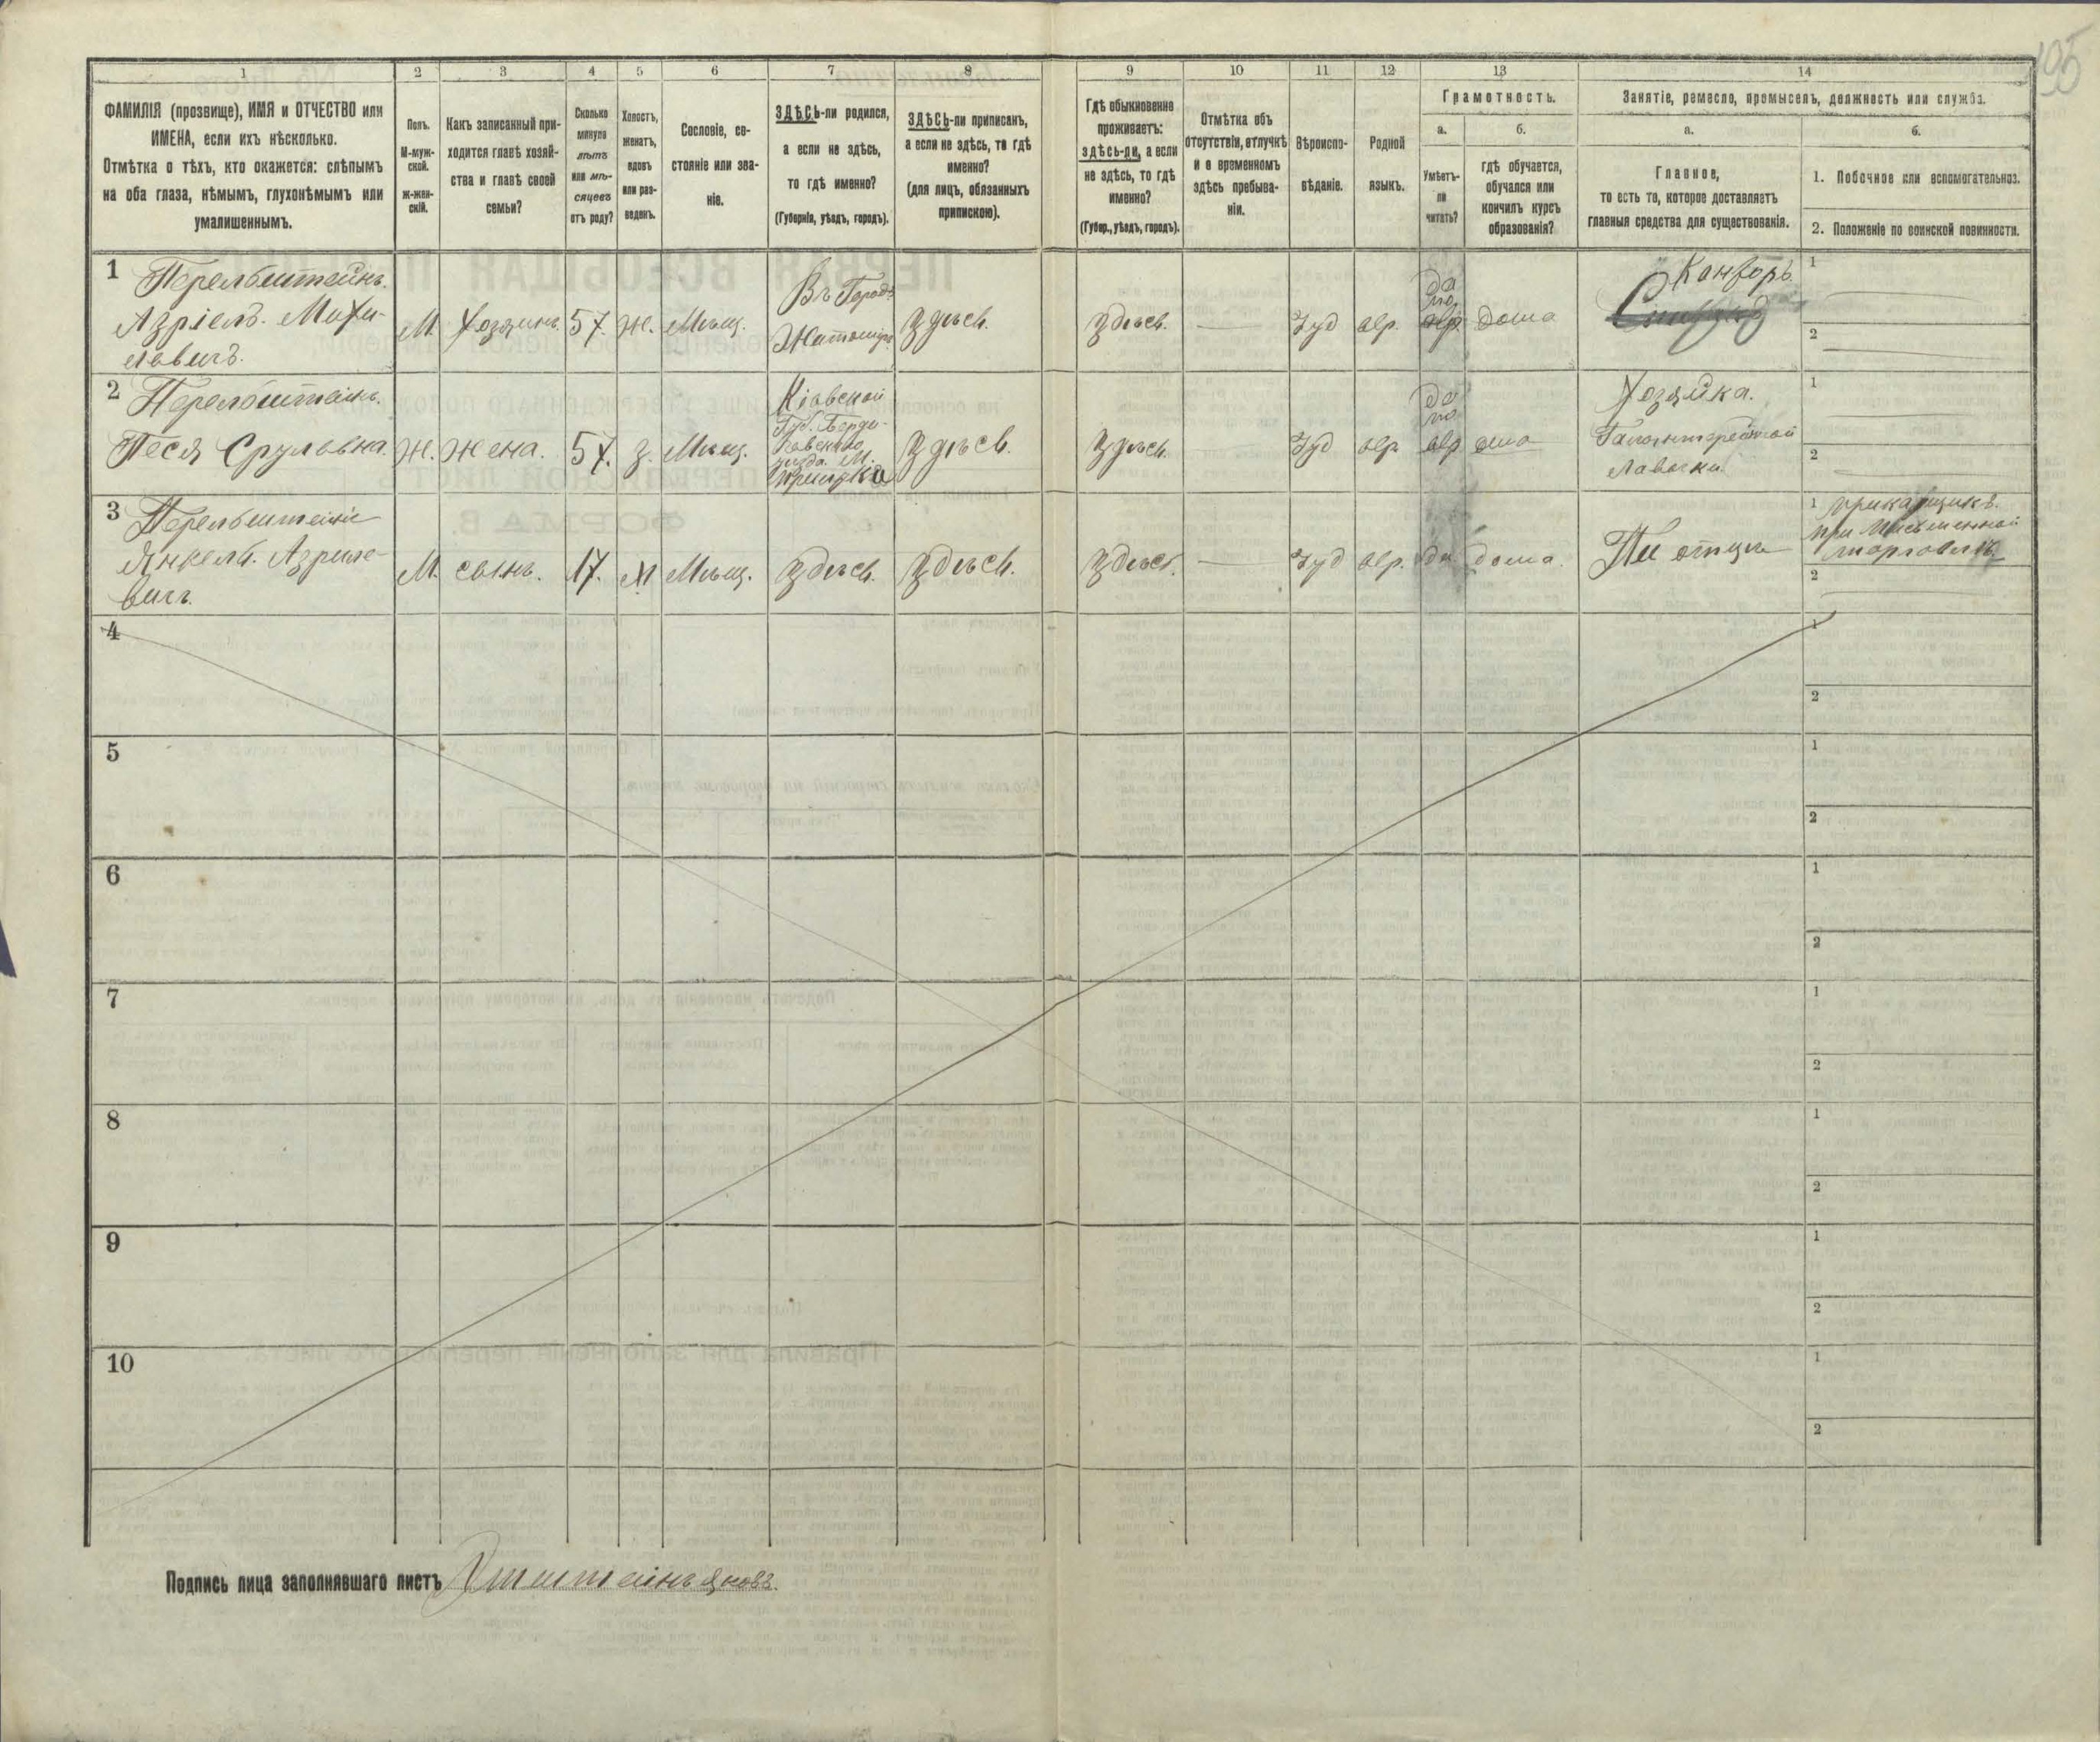 105
1 2 3 4 5 6 7 8 9 10 11 12 13 14
ФАМИЛІЯ (прозвище), ИМЯ и ОТЧЕСТВО или
ИМЕНА, если ихъ нѣсколько.
Отмѣтка о тѣхъ, кто окажется: слѣпымъ
на оба глаза, нѣмымъ, глухонѣмымъ или
умалишеннымъ.
Полъ.
М-муж-
ской.
ж-жен-
скій.
Какъ записанный при-
ходится главѣ хозяй-
ства и главѣ своей
семьи?
Сколько
минуло
лѣтъ
или мѣ-
сяцевъ
отъ роду?
Холостъ,
женатъ,
вдовъ
или раз-
веденъ.
Сословіе, со-
стояніе или зва-
ніе.
ЗДѢСЬ-ли родился,
а если не здѣсь,
то гдѣ именно?
(Губернія, уѣздъ, городъ).
ЗДѢСЬ-ли приписанъ,
а если не здѣсь, то гдѣ
именно?
(для лицъ, обязанныхъ
припискою).
Гдѣ обыкновенно
проживаетъ:
здѣсь-ли, а если
не здѣсь, то гдѣ
именно?
(Губер., уѣздъ, городъ).
Отмѣтка объ
отсутствіи, отлучкѣ
и о временномъ
здѣсь пребыва-
ніи.
Вѣроиспо-
вѣданіе.
Родной
языкъ.
Грамотность.
а.
Умѣетъ-
ли
читать?
б.
гдѣ обучается,
обучался или
кончилъ курсъ
образованія?
Занятіе, ремесло, промыселъ, должность или служба.
а.
Главное,
то есть то, которое доставляетъ
главныя средства для существованія.
б.
1. Побочное или вспомогательное.
2. Положеніе по воинской повинности.
1 Перельштейнъ.
Азріель. Михи-
левичъ.
М.
Хозяинъ.
57.
Ж.
Мѣщ.
Въ Городѣ
Житомірѣ
Здѣсь.
Здѣсь.
—
Іуд
евр.
да
по
евр.
дома
Канторъ.
1
2
2 Перельштейнъ.
Песя Срульевна.
Ж.
жена.
57.
З.
Мѣщ.
Кіевской
Губ. Берди-
чевскаго
уѣзда. М.
Здѣсь.
Здѣсь.
Іуд
евр.
да
по
евр
Хозяйка.
Галантерейной
лавочки.
1
2
3 Перельштейнъ
Янкель. Азриле-
вичъ.
М.
сынъ.
17.
Мѣщ.
Здѣсь.
Здѣсь.
Здѣсь.
—
Іуд
евр.
да
дома.
При отцѣ
1 прикащикъ.
при Письменной
торговлѣ
2
4 1
2
5 1
2
6 1
2
7 1
2
8 1
2
9 1
2
10 1
2
Подпись лица заполнявшаго листъ